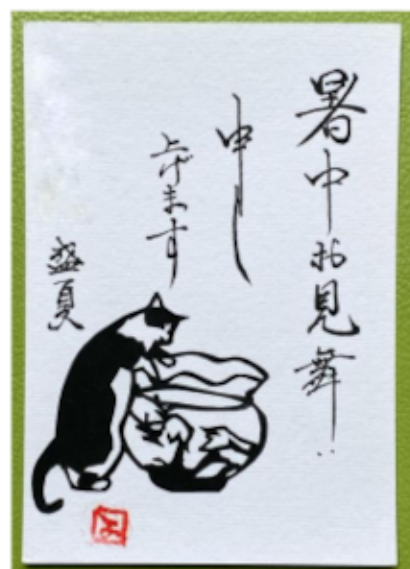 暑中お見舞
申し
上げます
盛夏